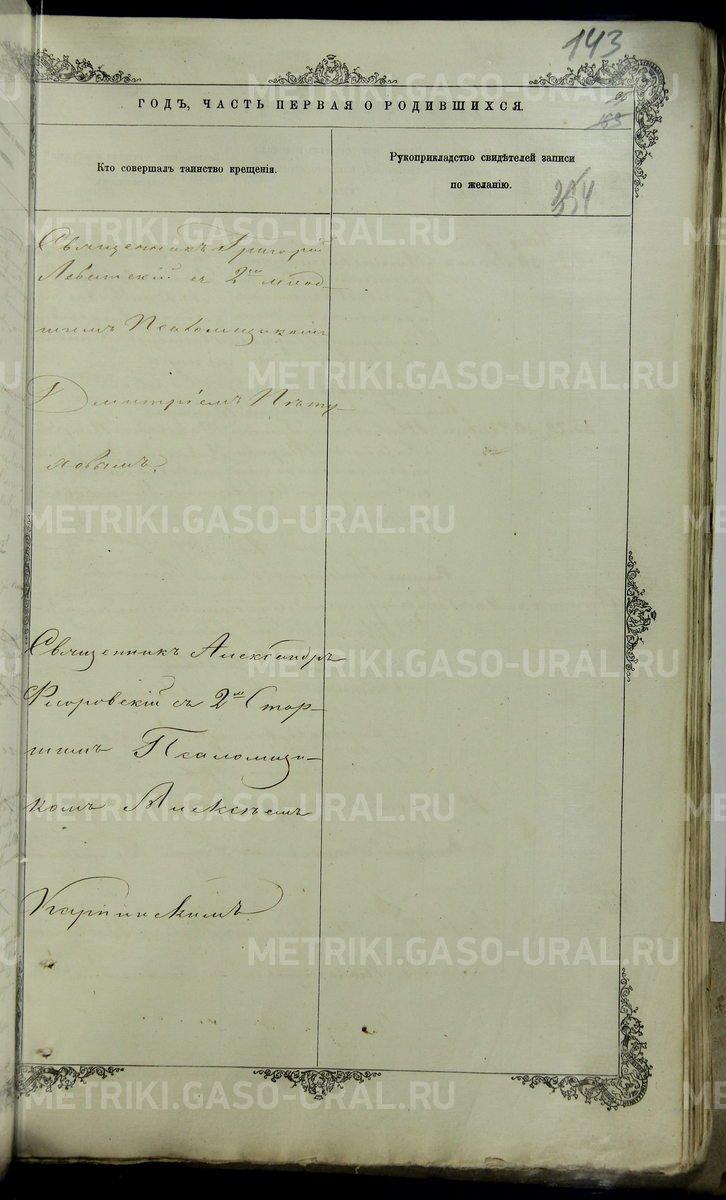 143
ГОДЪ, ЧАСТЬ ПЕРВАЯ О РОДИВШИХСЯ.
Кто совершалъ таинство крещенія.
Рукоприкладство свидѣтелей записи
по желанію.
Священникъ Григорій
Левитскій съ 2мъ млад-
шимъ Псаломщикомъ
Дмитріемъ Пѣту-
ховымъ.
Священникъ Александръ
Флоровскій съ 2мъ Стар-
шимъ Псаломщи-
комъ Алексѣемъ
Карпинскимъ
METRIKI.GASO-URAL.RU